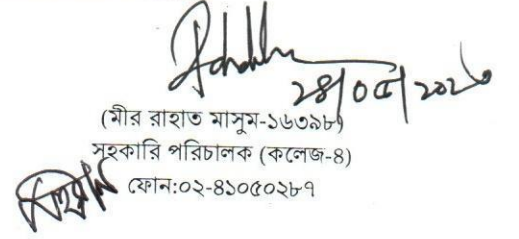 ২৪/০৫/২০২৩
(মীর রাহাত মাসুম-১৬৩৯৮)
সহকারি পরিচালক (কলেজ-৪)
ফোন:০২-৪১০৫০২৮৭